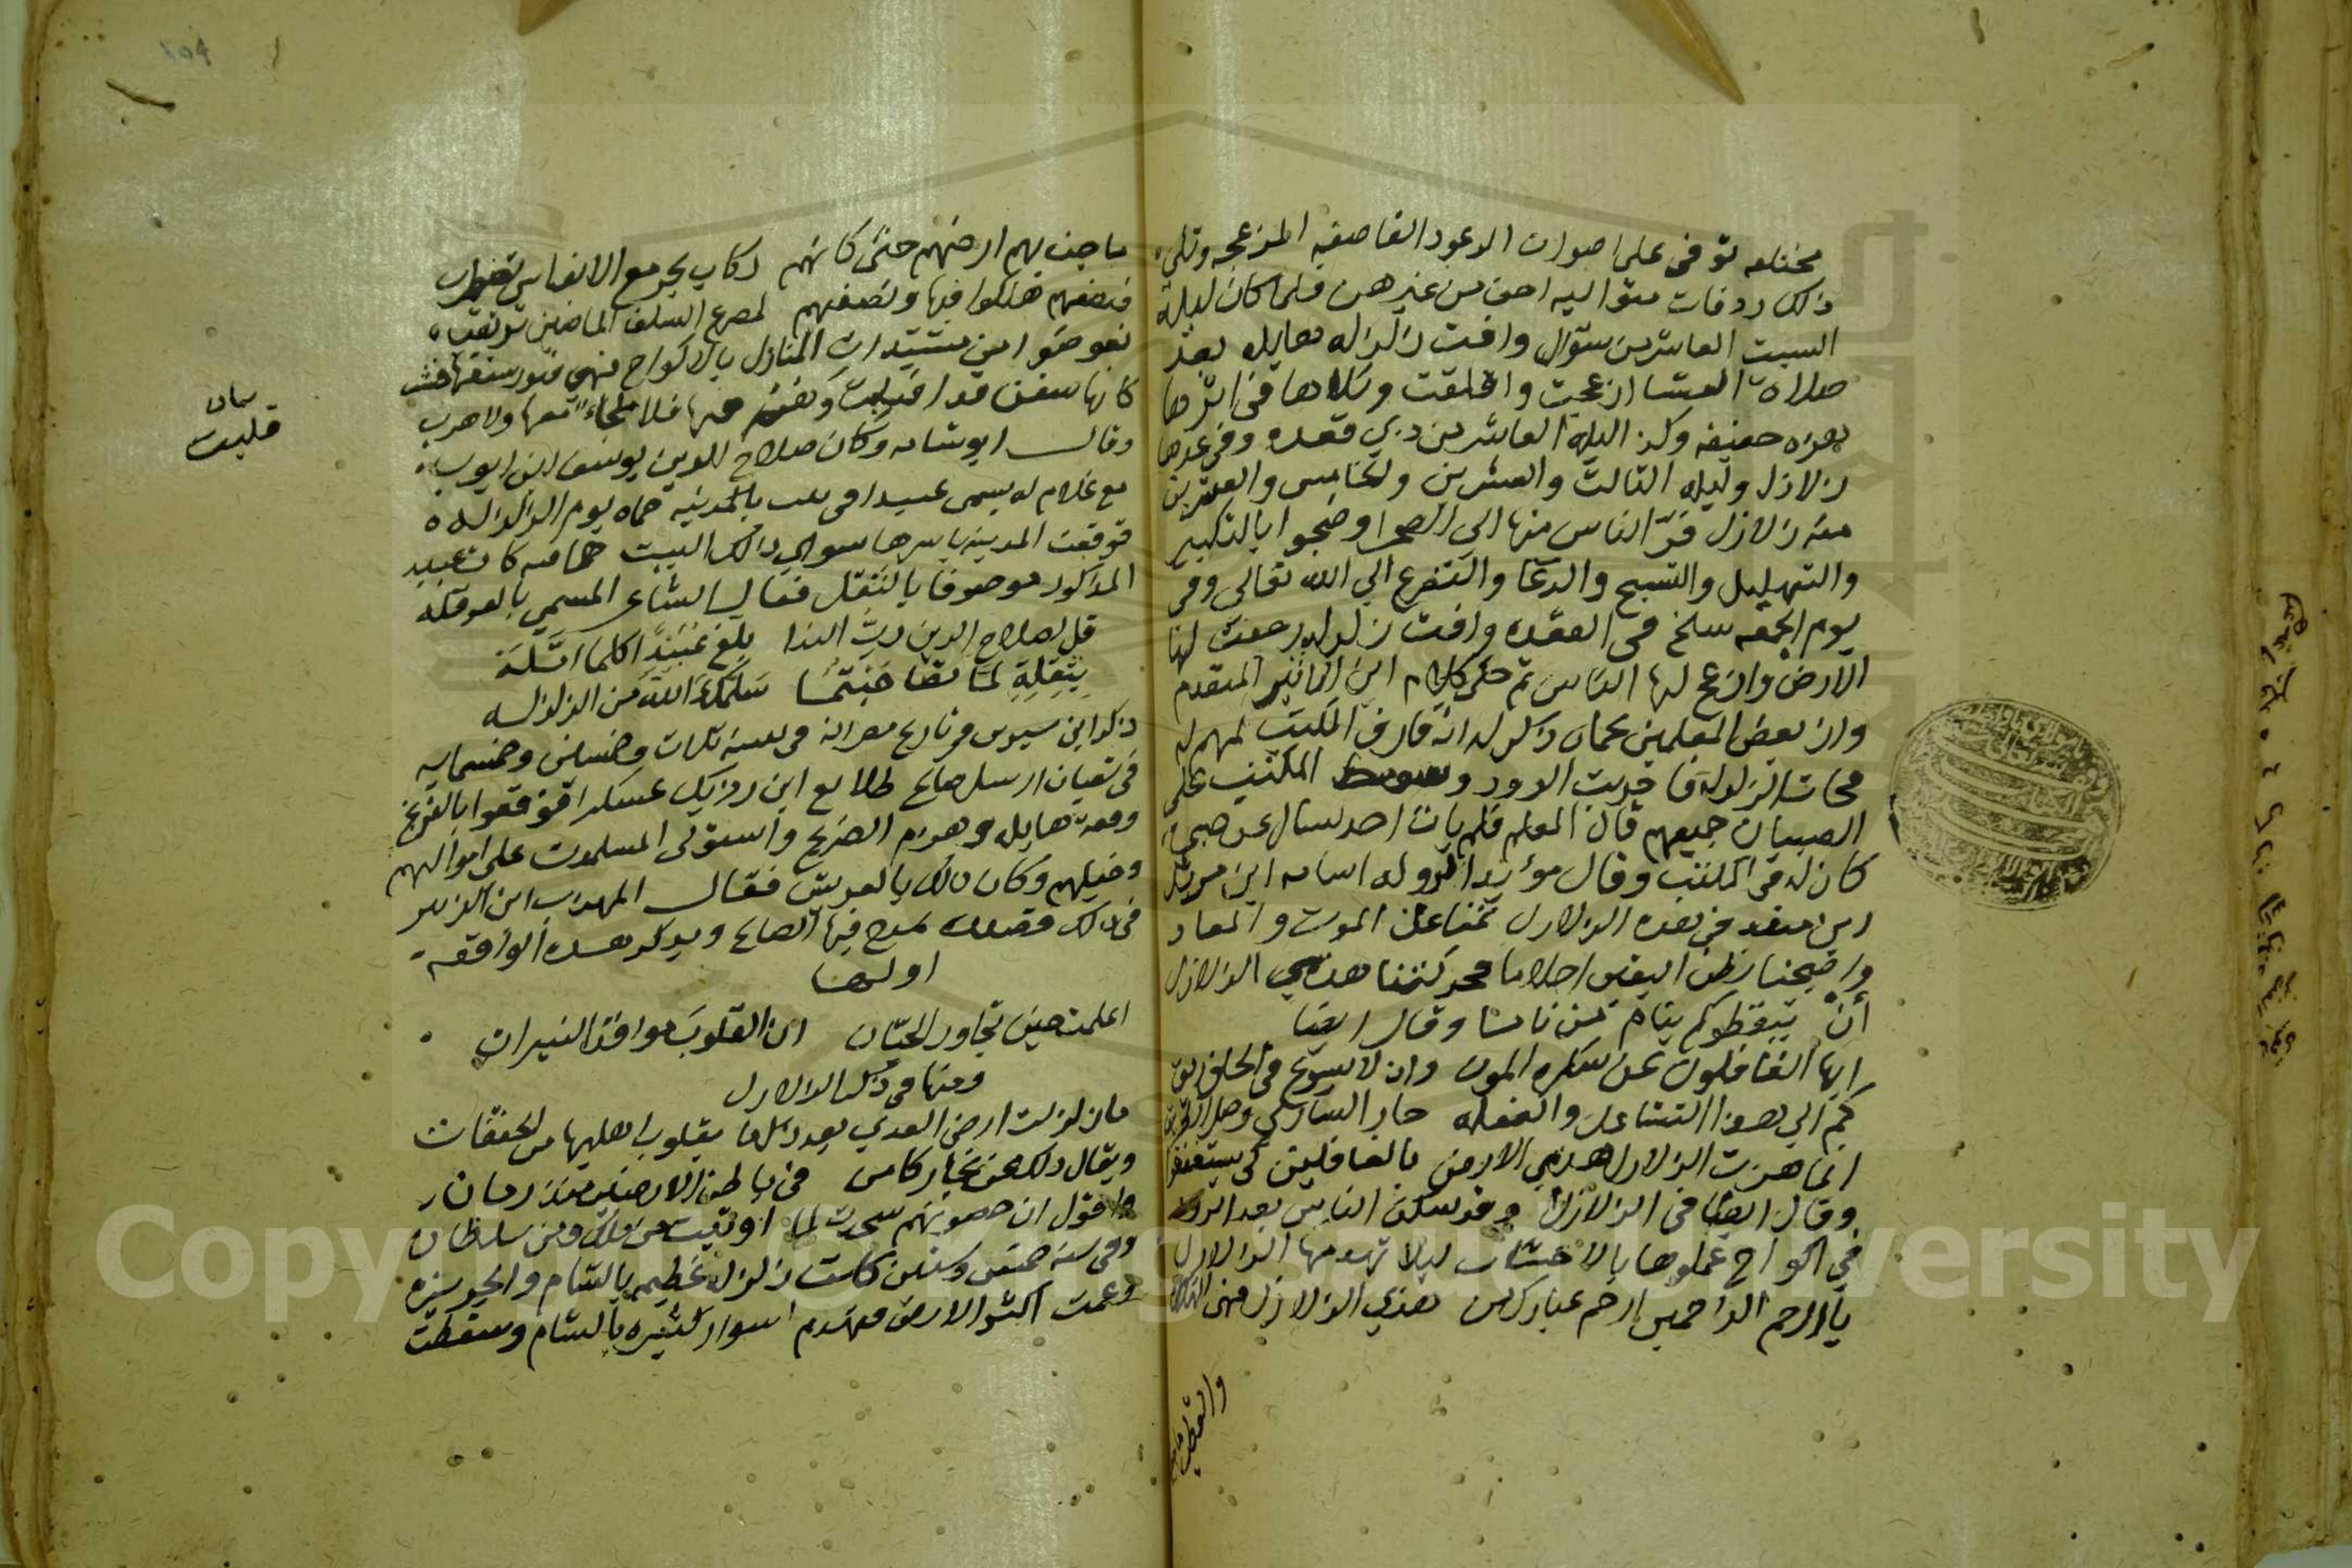 مختلفه توفى على اصوات الرعود القاصفه المزعجه وتلى
ذلك ردفات متواليه اخف من غيرهن فلما كان ليلة
السبت العاشر من شوال وافت زلزله هايله بعد
صلاة العشا ازعجت واقلقت وتلاها فى اثرها
هزه خفيفه وكذا ليله العاشر من ذي قعده وفى غدها
زلازل وليله الثالث والعشرين والخامس والعشرين
منه زلازل فرّ الناس منها الى الصحرا وضجوا بالتكبير
والتهليل والتسبيح والدعا والتضرع الي الله تعالى وفى
يوم الجمعه سلخ ذى القعده وافت زلزله رجفت لها
الارض وانزعج لها الناس ثم حكى كلام ابن الاثير المتقدم
وان بعض المعلمين بحماه ذكر له انه فارق المكتب لمهم له
فجات الزلزلة فاخربت الدور وسقط المكتب على
الصبيان جميعهم قال المعلم فلم يات احد يسال عن صبي
كان له فى المكتب وقال مؤيد الدوله اسامه ابن مرشد
ابن منقذ فى هذه الزلازل نمنا عن الموت والمعاد
واصبحنا نظن اليقين احلاما فحركتنا هذي الزلازل
أن تيقظوا كم ينام من ناما وقال ايضا
ايها الغافلون عن سكره الموت وان لا يسوغ فى الحلق ريق
كم الي هذا التشاغل والغفله حار الساري وضل الطريق
انما هزت الزلازل هذي الارض بالغافلين كى يستفيقوا
وقال ايضا فى الزلازل وقد سكن الناس بعد الدور
فى اكواخ عملوها بالاخشاب ليلا تهدمها الزلازل
يا ارحم الراحمين ارحم عبادك من هذي الزلازل فهى الهلاك
ماجت بهم ارضهم حتى كانهم ركاب بحر مع الانفاس تضطرب
فنصفهم هلكوا فيها ونصفهم لمصرع السلف الماضين يرتقب
تعوضوا من مشيدات المنازل بالاكواخ فهي قبور سقفها خشب
كانها سفن قد اقبلت وهم فيها فلا ملجاء منها ولا هرب
وقال ابو شامه وكان صلاح الدين يوسف ابن ايوب
مع غلام له يسمى عبيدا فى بيت بالمدينه حماه يوم الزلزله
فوقعت المدينه باسرها سوى ذلك البيت حماه كان عبيد
المذكور موصوفا بالثقل فقال الشاعر المسمي بالعرقله
قل لصلاح الدين رب الندا بلغ عبيدا كلما امّله
بثقله لما تضاهيتما سلمك الله من الزلزله
ذكر ابن ميسر فى تاريخ مصر انه فى سنه ثلاث وخمسين وخمسمايه
فى شعبان ارسل صالح طلائع ابن رزيك عسكرا فوقعوا بالفرنج
وقعة هايله وهزم الفرنج واستولى المسلمون على اموالهم
وخيلهم وكان ذلك بالعريش فقال المهذب ابن الزبير
فى ذلك قصيده يمدح فيها الصالح ويذكر هذه الواقعه
اولها
اعلمت حين تجاور الحيّان ان القلوب مواقد النيران
ومنها فى ذكر الزلازل
ما زلزلت ارض العدي بعد ذلك ما بقلوب اهليها من الخفقان
واقول ان حصونهم سجدت لما اوتيت من ملك ومن سلطان
وفى سنه خمس وستين كانت زلزله عظيمه بالشام والجزيره
وعمت اكثر الارض فهدم اسوار كثيره بالشام وسقطت
قلبت